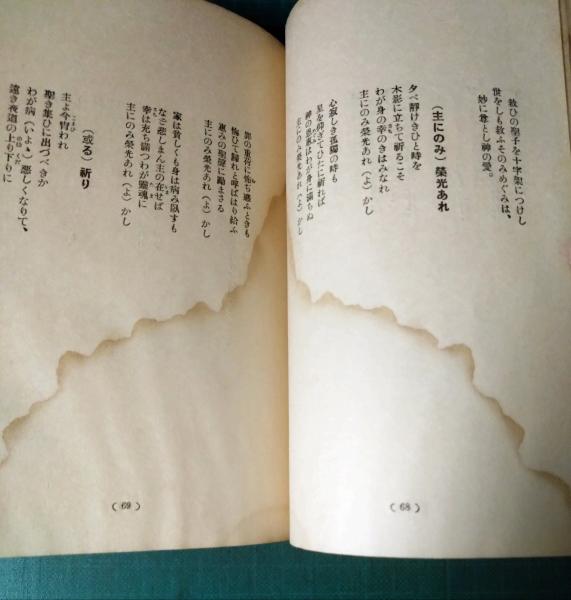 救ひの聖子を十字架につけし
世をしも救ふそのみめぐみは、
妙に尊とし神の愛。
(主にのみ) 榮光あれ
夕べ靜けきひと時を
木影に立ちて祈るこそ
わが身の幸のきはみなれ
主にのみ榮光あれ(よ)かし
心寂しき孤獨の時も
星を仰ぎてひたに祈れば
神の恩惠はわが身に滿ちぬ
主にのみ榮光あれ(よ)かし
(68)
罪の重荷に怖ぢ惑ふときも
悔ひて歸れと呼ばはり給ふ
惠みの聖聲に勵まさる
主にのみ榮光あれ(よ)かし
家は貧しくも身は病み臥すも
なぞ悲しまん主の在せば
幸は充ち溢つわが靈魂に
主にのみ榮光あれ(よ)かし
(或る) 祈り
主よ今宵われ
聖き集ひに出づべきか
わが病(いよよ)悪しくなりて、
遠き夜道の上り下りに
(69)